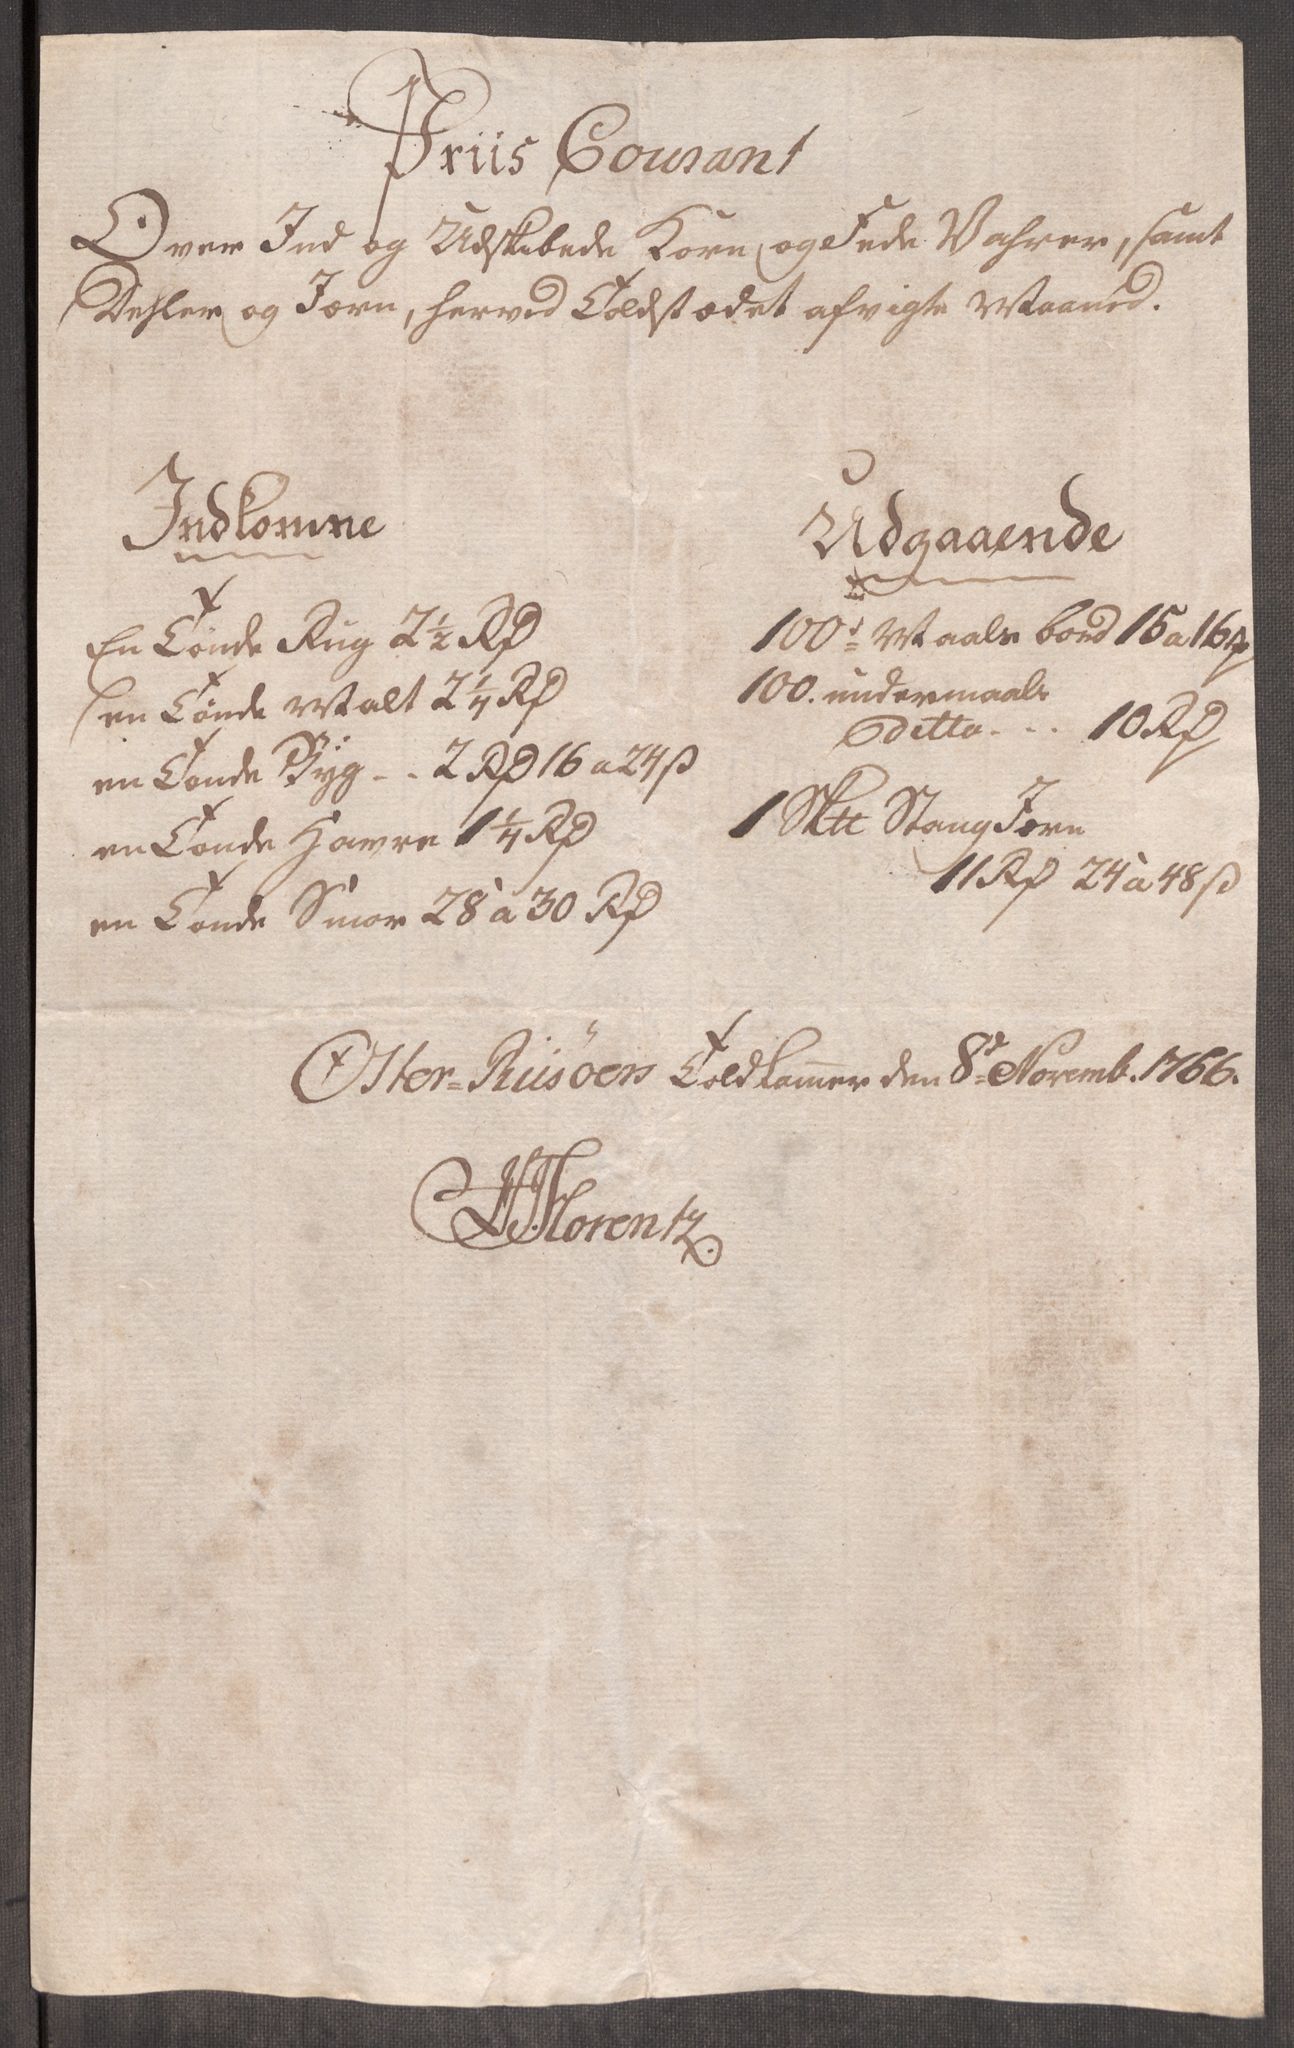 Priis Courant
Over Ind og Udskibede Korn og Fede Vahrer, samt
Dehler og Jern, herved Toldstædet afvigte Maaned.
Indkomne
En Tønde Rug 2½ Rd
en Tønde Malt 2¼ Rd
en Tønde Byg - . 2 Rd 16 a 24 ß
en Tønde Havre 1¼ Rd
en Tønde Smør 28 à 30 Rd
Udgaaende
100d Maals bord 15 a 16 rd
100. undermaals
ditto . . . 10 Rd
1 Sktt Stang Jern
11 Rd 24 à 48 ß
Oster-Riisöers Toldkammer den 8d Novemb. 1766.
Florentz